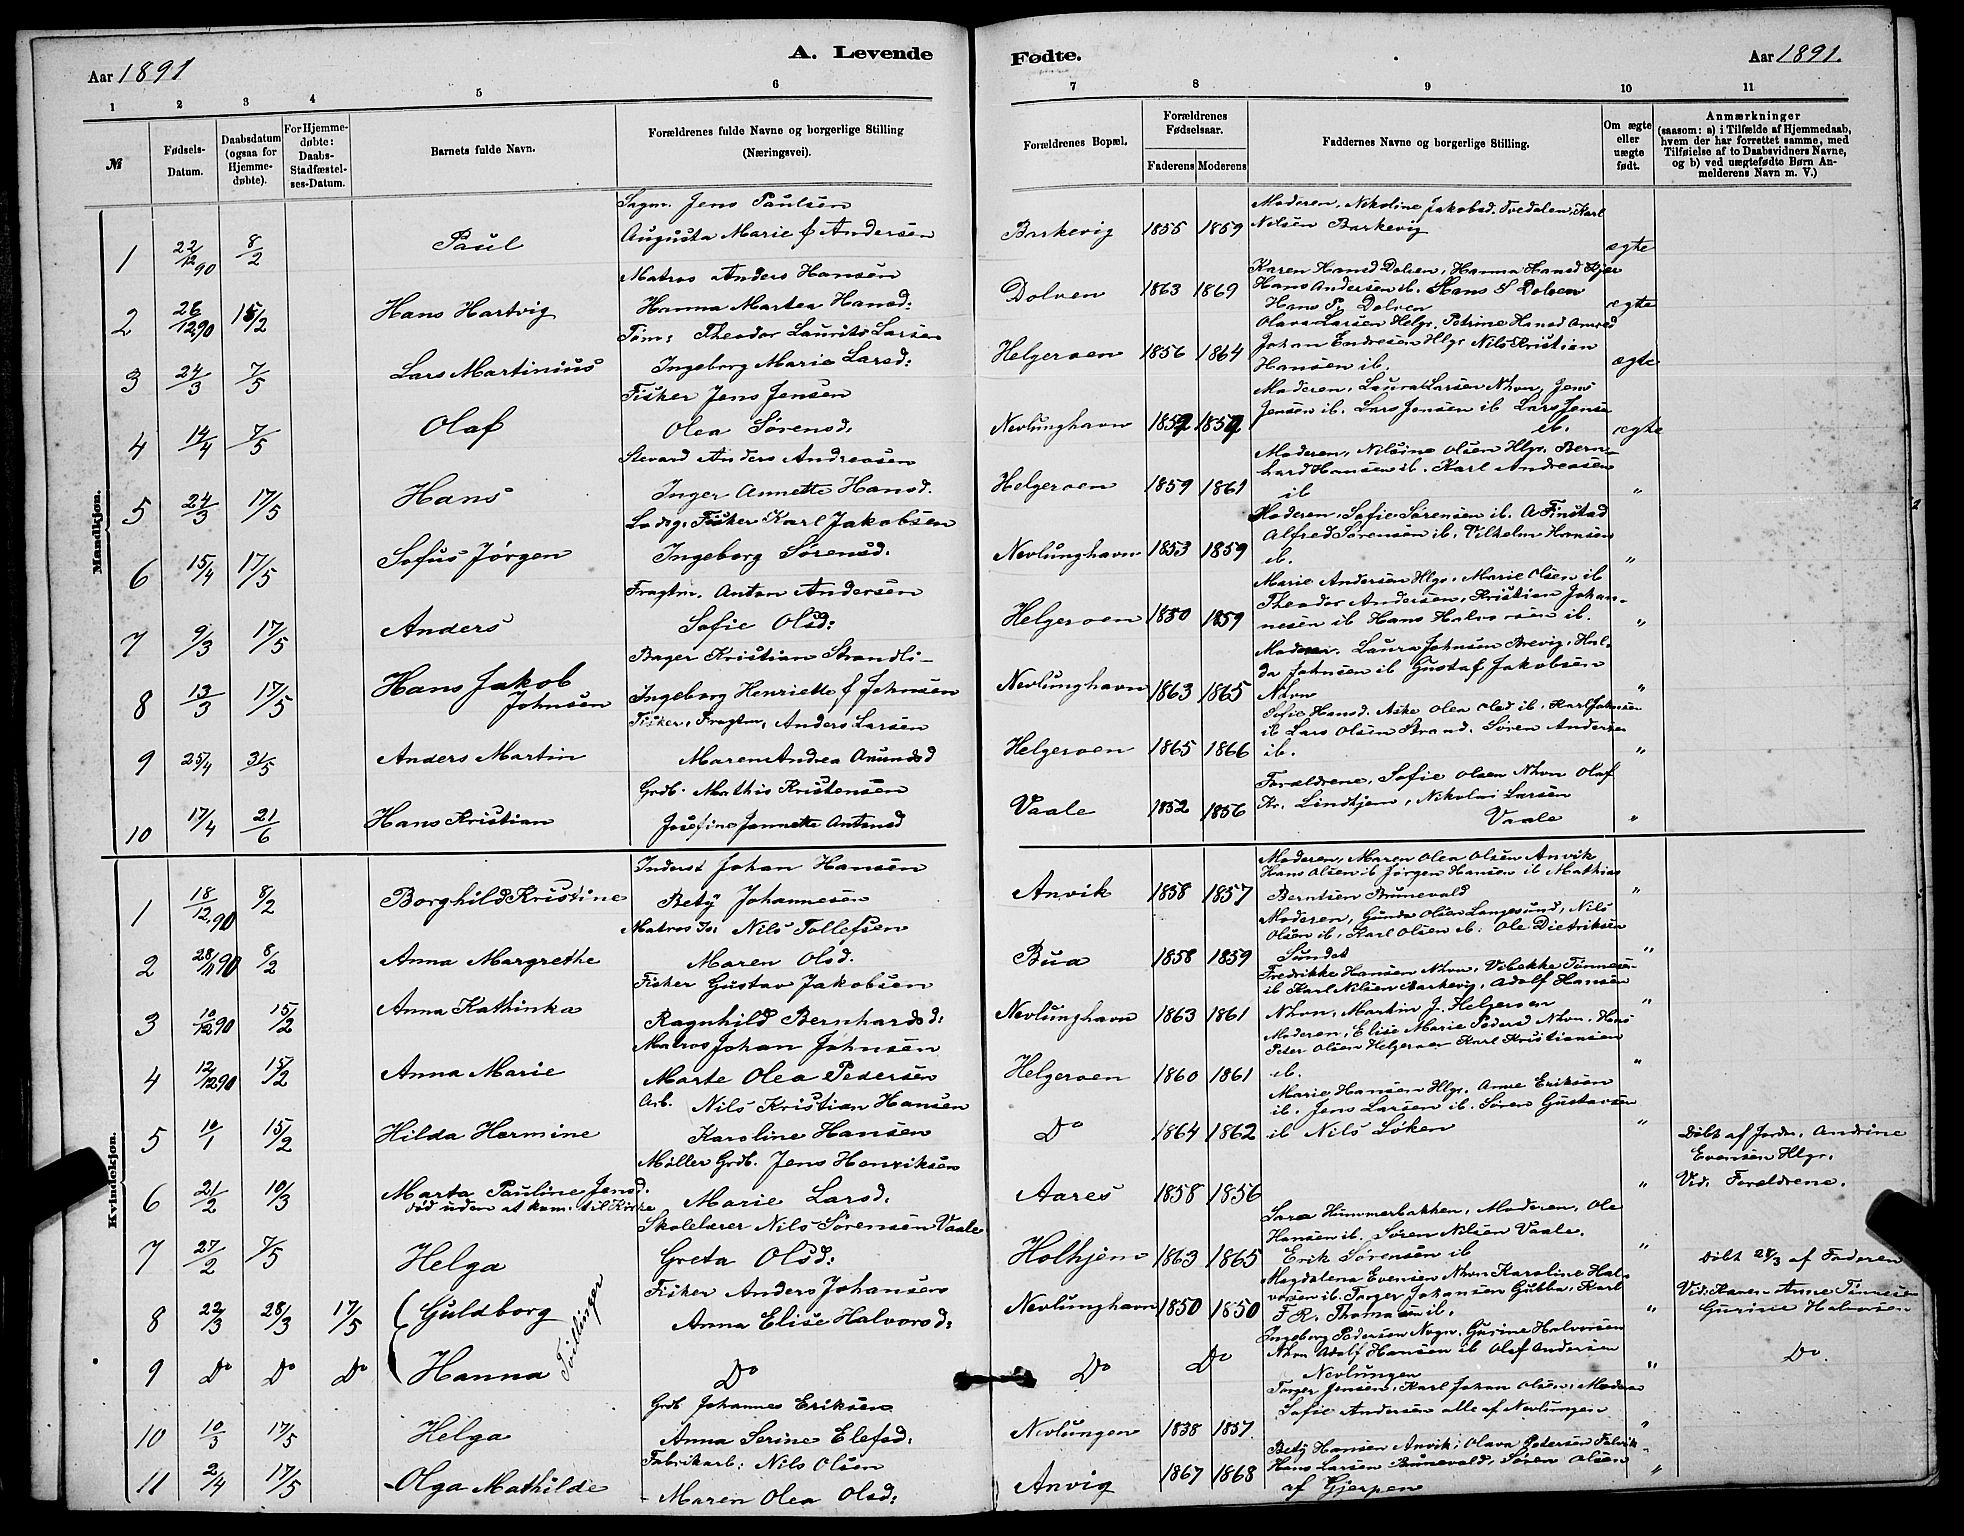 Aar 1891
A. Levende
Fødte.
Aar 1891.
1 2 3 4 5 6 7 8 9 10 11
№
Fødsels-
Datum.
Daabsdatum
(ogsaa for
Hjemme-
døbte).
For Hjemme-
døbte:
Daabs-
Stadfæstel-
ses-Datum.
Barnets fulde Navn.
Forældrenes fulde Navne og borgerlige Stilling
(Næringsvei).
Forældrenes Bopæl.
Forældrenes
Fødselsaar.
Faderens Moderens
Faddernes Navne og borgerlige Stilling.
Om ægte
eller
uægte
født.
Anmærkninger
(saasom: a) i Tilfælde af Hjemmedaab,
hvem der har forrettet samme, med
Tilføielse af to Daabsvidners Navne,
og b) ved uægtefødte Børn An-
melderens Navn m. V.)
Mandkjøn.
1 22/12 90 8/2 Paul
Sagm. Jens Paulsen
Augusta Marie f Andersen
Barkevig 1855 1859
Moderen, Nikoline Jakobsd. Tvedalen, Karl
Nilsen Barkevig
ægte
2 26/12 90 15/2 Hans Hartvig
Matros Anders Hansen
Hanna Martea Hansd:
Dolven 1863 1869
Karen Hansd Dolven, Hanna Hansd Kjer
Hans Andersen ib. Hans S Dolven
Hans P. Dolven
ægte
3 24/3 7/5 Lars Martinius
Tøm: Theodor Laurits Larsen
Ingeborg Marie Larsd:
Helgeroen 1856 1864
Olava Larsen Helgr. Petrine Hansd
Johan Endresen Hlgr Nils Kristian
Hansen ib.
ægte
4 14/4 7/5 Olaf
Fisker Jens Jensen
Olea Sørensd.
Nevlunghavn
Moderen, Laura Larsen Nhvn, Jens
Jensen ib. Lars Jensen ib Lars Jensen
ib.
ægte
5 24/3 17/5 Hans
Stevard Anders Andreasen
Inger Annette Hansd.
Helgeroen 1859 1861
Moderen, Nilsine Olsen Hlgr. Bern-
hard Hansen ib. Karl Andreasen
ib
"
6 15/4 17/5 Sofus Jørgen
Lodsg. Fisker Karl Jakobsen
Ingeborg Sørensd.
Nevlunghavn 1853 1859
Moderen, Sofie Sørensen ib. A Finstad
Alfred Sørensen ib. Vilhelm Hansen
ib.
"
7 9/3 17/5 Anders
Fragtm. Anton Andersen
Sofie Olsd:
Helgeroen 1850 1859
Marie Andersen Hlgr. Marie Olsen ib
Theodor Andersen, Kristian Johan-
nesen ib Hans Halvorsen ib.
"
8 13/3 17/5 Hans Jakob
Johnsen
Bager Kristian Strandli-
Ingeborg Henriette f Johnsen
Nevlunghavn 1863 1865
Moderen. Laura Johnsen Brevig, Hul-
da Johnsen ib Gustaf Jakobsen
Nhvn
"
9 25/4 31/5 Anders Martin
Fisker, Fragtm, Anders Larsen
Maren Andrea Amundsd
Helgeroen 1865 1866
Sofie Hansd. Aske Olea Olsd ib. Karl Johnsen
ib Lars Olsen Strand. Søren Andersen
ib.
"
10 17/4 21/6 Hans Kristian
Grdb. Mathis Kristensen
Josefine Jannette Antonsd
Vaale 1852 1856
Forældrene, Sofie Olsen Nhvn Olaf
Kr. Lindhjem, Nikolai Larsen
Vaale
"
Kvindekjøn.
1 18/12 90 8/2 Borghild Kristine
Inderst Johan Hansen
Bety Johannesen
Anvik 1858 1857
Moderen, Maren Olea Olsen Anvik
Hans Olsen ib Jørgen Hansen ib Mathias
Berntsen Brunevald
"
2 28/11 90 8/2 Anna Margrethe
Matros Is: Nils Tollefsen
Maren Olsd.
Bua 1858 1859
Moderen, Gunda Olsen Langesund, Nils
Olsen ib. Karl Olsen ib. Ole Diedriksen
Sundet
"
3 10/12 90 15/2 Anna Kathinka
Fisker Gustav Jakobsen
Ragnhild Bernhardsd:
Nevlunghavn 1863 1861
Fredrikke Hansen Nhvn, Vibekke Tønnesen
ib Karl Nilsen Barkevig, Adolf Hansen
Nhvn, Martin J. Helgeroen
"
4 12/12 90 15/2 Anna Marie
Matros Johan Johnsen
Marte Olea Pedersen
Helgeroen 1860 1861
Moderen, Elise Marie Pedersd Nhvn. Hans
Peter Olsen Helgeroen Karl Kristiansen
ib.
"
5 10/1 15/2 Hilda Hermine
Arb. Nils Kristian Hansen
Karoline Hansen
Do 1864 1862
Marie Hansen Hlgr. Anne Eriksen
ib. Jens Larsen ib. Søren Gustavsen
ib Nils Løken
"
6 21/2 10/3 Marta Pauline Jensd.
død uden at kom. til Kirke
Møller Grdb. Jens Henriksen
Marie Larsd.
Aares 1858 1856
"
Døbt af Jordm. Andrine
Evensen Hlgr.
Vid. Forældrene.
7 27/2 7/5 Helga
Skolelærer Nils Sørensen Vaale
Greta Olsd:
Holhjem 1863 1865
Sara Hummerbakken, Moderen, Ole
Hansen ib. Søren Nilsen Vaale.
Erik Sørensen ib
"
8 22/3 28/3 17/5 Guldborg
Tvillinger
Fisker Anders Johansen
Anna Elise Halvorsd:
Nevlunghavn 1850 1850
Magdalena Evensen Nhvn Karoline Hal-
vorsen ib. Torger Johansen Gubba, Karl
F. R. Thomasen ib.
"
Døbt 28/3 af Faderen
Vid: Karen Anne Tønnesen
Gurine Halvorsen
9 Do Do Do Hanna
Do
Do Do
Ingeborg Pedersen Nvgn. Gurine Halvorsen
Nhvn Adolf Hansen ib Olaf Andersen
Nevlungen
"
Do.
10 10/3 17/5 Helga
Grdb Johannes Eriksen
Anna Serine Elefsd:
Nevlungen 1838 1857
Torger Jensen, Karl Johan Olsen, Moderen
Sofie Andersen alle af Nevlungen
"
11 2/4 17/5 Olga Mathilde
Fabrikarb: Nils Olsen
Maren Olea Olsd:
Anvig 1867 1868
Bety Hansen Anvik, Olava Petersen Falvik.
Hans Larsen Brunevald, Søren Olsen
af Gjerpen
"